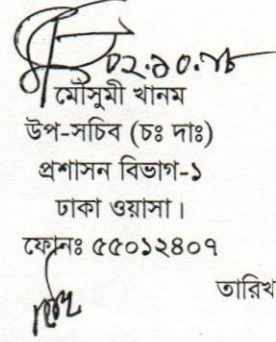 ০২.১০.১৮
মৌসুমী খানম
উপ-সচিব (চঃ দাঃ)
প্রশাসন বিভাগ-১
ঢাকা ওয়াসা।
ফোনঃ ৫৫০১২৪০৭
তারিখ